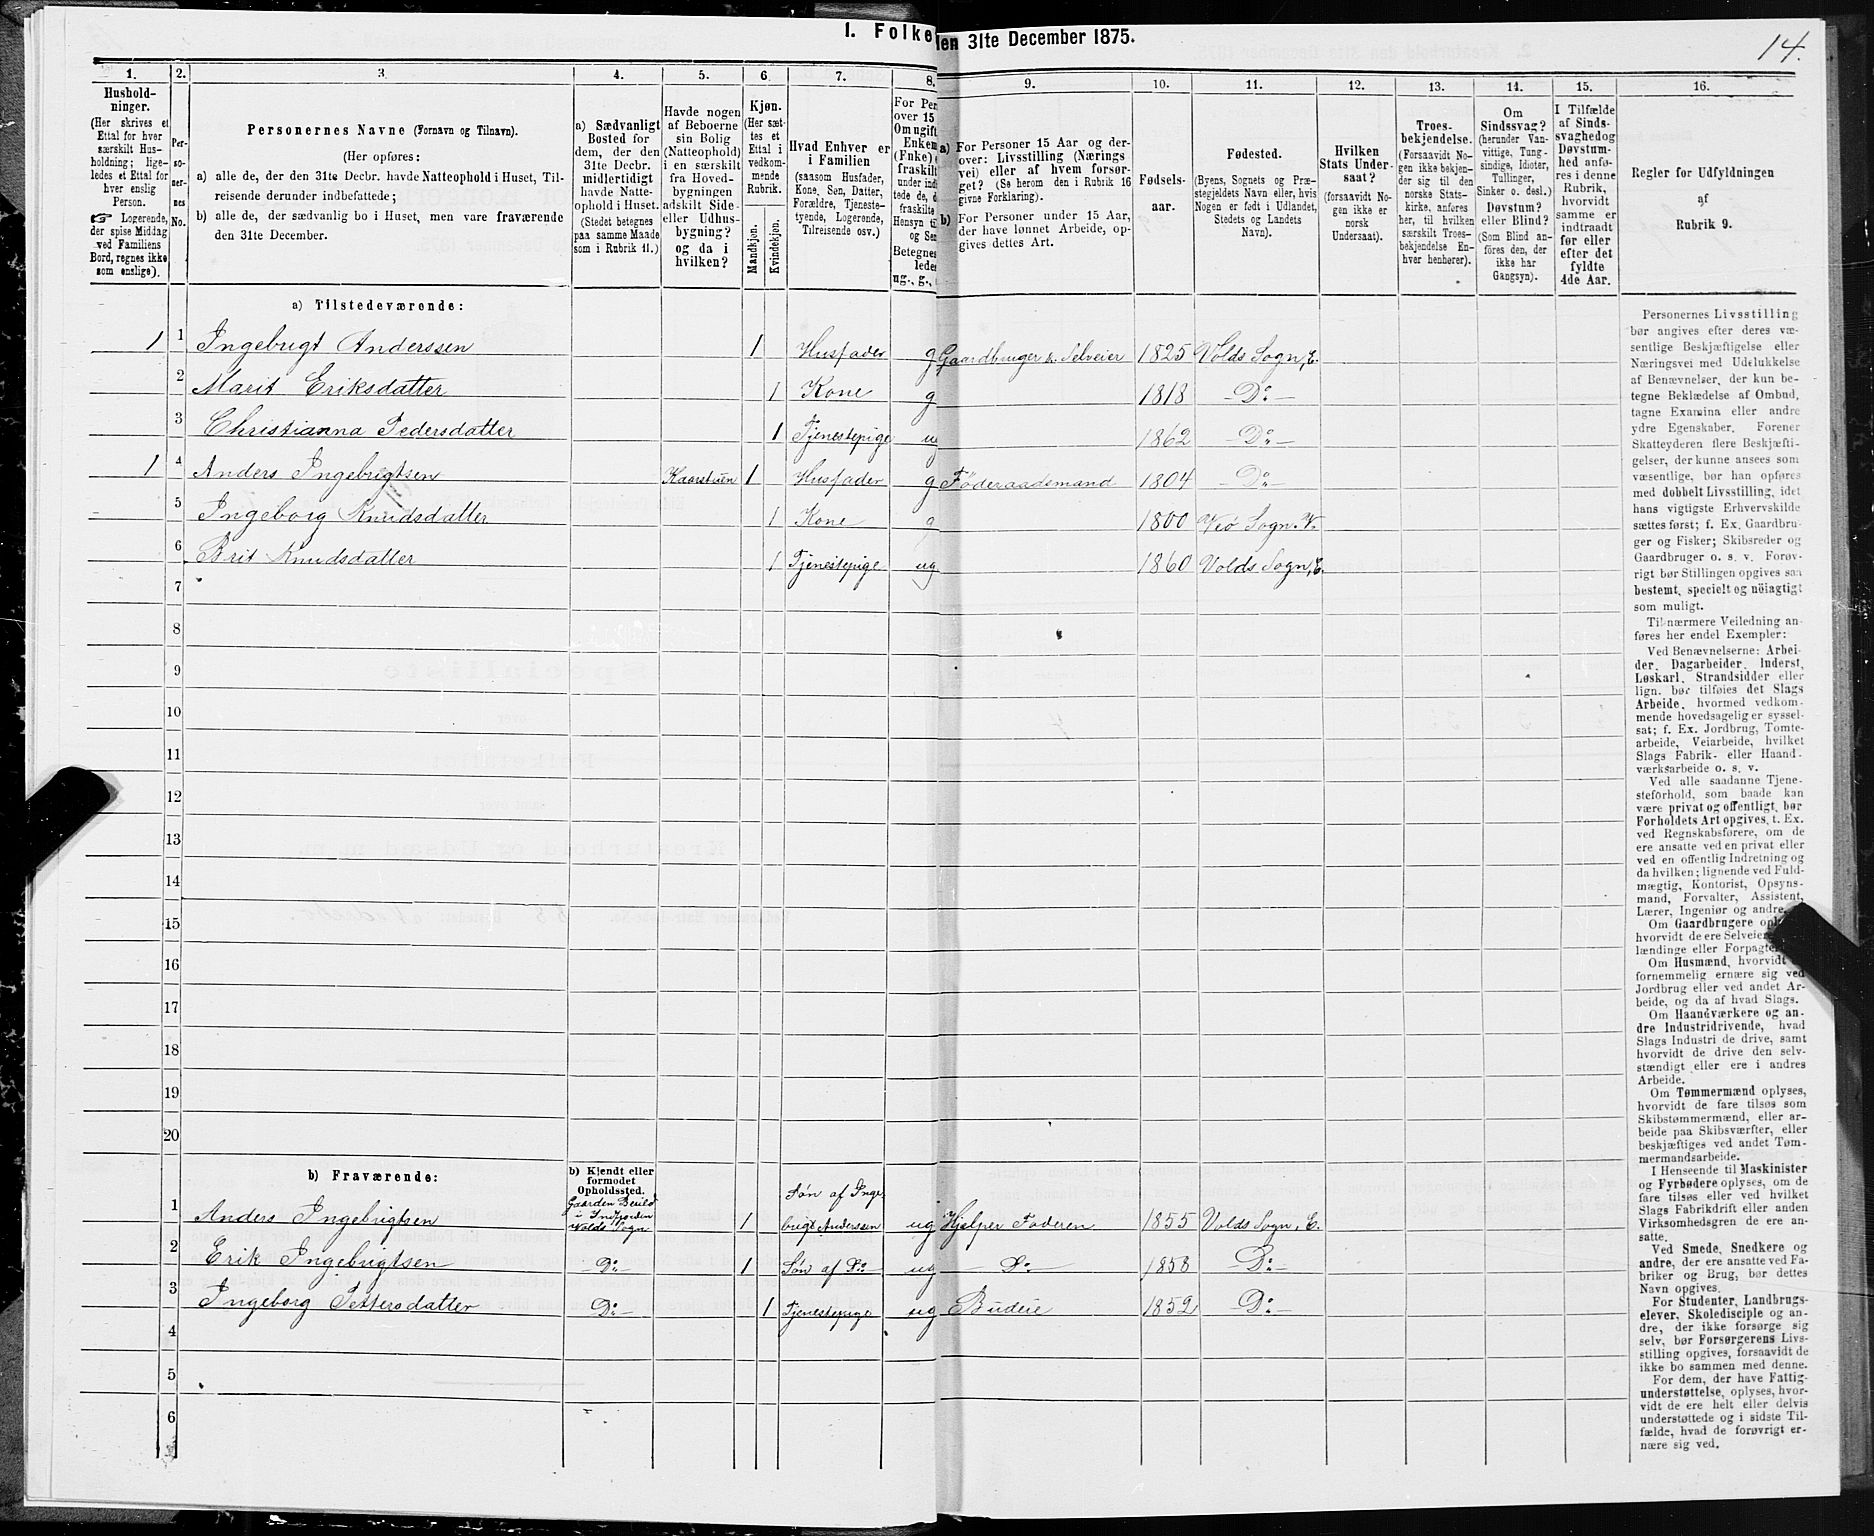 1. Folke
den 31te December 1875.
14.
1.
2.
3.
4.
5.
6.
7.
8.
9.
10.
11.
12.
13.
14.
15.
16.
Hushold-
ninger.
(Her skrives et
Ettal for hver
særskilt Hus-
holdning; lige-
ledes et Ettal for
hver enslig
Person.
☞ Logerende,
der spise Middag
ved Familiens
Bord, regnes ikke
som enslige).
Per-
so-
ner-
nes
No.
Personernes Navne (Fornavn og Tilnavn).
(Her opføres:
a) alle de, der den 31te Decbr. havde Natteophold i Huset, Til-
reisende derunder indbefattede;
b) alle de, der sædvanlig bo i Huset, men vare fraværende
den 31te December.
a) Sædvanligt
Bosted for
dem, der den
31te Decbr.
midlertidigt
havde Natte-
ophold i Huset.
(Stedet betegnes
paa samme Maade
som i Rubrik 11.)
Havde nogen
af Beboerne
sin Bolig
(Natteophold)
i en særskilt
fra Hoved-
bygningen
adskilt Side-
eller Udhus-
bygning?
og da i
hvilken?
Kjøn.
(Her sæt-
tes et
Ettal i
vedkom-
mende
Rubrik.
Mandkjøn.
Kvindekjøn.
Hvad Enhver er
i Familien
(saasom Husfader,
Kone, Søn, Datter,
Forældre, Tjeneste-
tyende, Logerende,
Tilreisende osv.)
For Per
over 15
Om ugift
Enkem
(Fnke)
fraskilt
under ind
tede de, d
fraskilte
Hensyn ti
og Se
Betegnes
lede
ug., g.,
a) For Personer 15 Aar og der-
over: Livsstilling (Nærings
vei) eller af hvem forsør-
get? (Se herom den i Rubrik 16
givne Forklaring).
b) For Personer under 15 Aar,
der have lønnet Arbeide, op-
gives dettes Art.
Fødsels-
aar.
Fødested.
(Byens, Sognets og Præ-
stegjeldets Navn eller, hvis
Nogen er født i Udlandet,
Stedets og Landets
Navn).
Hvilken
Stats Under-
saat?
(forsaavidt No-
gen ikke er
norsk
Undersaat).
Troes-
bekjendelse.
(Forsaavidt No-
gen ikke bekjen-
der sig til den
norske Stats-
kirke, anføres
her, til hvilken
særskilt Troes-
bekjendelse En-
hver henhører).
Om
Sindssvag?
(herunder Van-
vittige, Tung-
sindige, Idioter,
Tullinger,
Sinker o. desl.)
Døvstum?
eller Blind?
(Som Blind an-
föres den, der
ikke har
Gangsyn).
I Tilfælde
af Sinds-
svaghed og
Døvstum-
hed anfø-
res i denne
Rubrik,
hvorvidt
samme er
indtraadt
før eller
efter det
fyldte
4de Aar.
Regler for Udfyldningen
af
Rubrik 9.
a) Tilstedeværende:
1 1 Ingebrigt Anderssen 1 Husfader g Gaardbruger & Selveier 1825 Volds Sogn, E.
2 Marit Eriksdatter 1 Kone g 1818 —Do—
3 Christianna Pedersdatter 1 Tjenestepige ug 1862 —Do—
1 4 Anders Ingebrigtsen Kaarstuen 1 Husfader g Föderaadsmand 1804 —Do—
5 Ingeborg Knudsdatter 1 Kone g 1800 Veö Sogn. V.
6 Brit Knudsdatter 1 Tjenestepige ug 1860 Volds Sogn, E.
7
8
9
10
11
12
13
14
15
16
17
18
19
20
b) Fraværende:
b) Kjendt eller
formodet
Opholdssted.
Gaarden
i Indfjorden
Volds Sogn
Søn af Inge-
1 Anders Ingebrigtsen 1 brigt Anderssen ug Hjelper Faderen 1855 Volds Sogn, E.
2 Erik Ingebrigtsen Do 1 Søn af Do— ug —Do— 1858 —Do—
3 Ingeborg Pettersdatter Do— 1 Tjenestepige ug Budeie 1852 —Do—
4
5
6
Personernes Livsstilling
bør angives efter deres væ-
sentlige Beskjæftigelse eller
Næringsvei med Udelukkelse
af Benævnelser, der kun be-
tegne Beklædelse af Ombud,
tagne Examina eller andre
ydre Egenskaber. Forener
Skatteyderen flere Beskjæfti-
gelser, der kunne ansees som
væsentlige, bør han opføres
med dobbelt Livsstilling, idet
hans vigtigste Erhvervskilde
sættes først; f. Ex. Gaardbru-
ger og Fisker; Skibsreder og
Gaardbruger o. s. v. Forøv-
rigt bør Stillingen opgives saa
bestemt, specielt og nöiagtigt
som muligt.
Til nærmere Veiledning an-
føres her endel Exempler:
Ved Benævnelserne: Arbei-
der, Dagarbeider, Inderst,
Løskarl, Strandsidder eller
lign. bør tilføies det Slags
Arbeide, hvormed vedkom-
mende hovedsagelig er syssel-
sat; f. Ex. Jordbrug, Tomte-
arbeide, Veiarbeide, hvilket
Slags Fabrik- eller Haand-
værksarbeide o. s. v.
Ved alle saadanne Tjene-
steforhold, som baade kan
være privat og offentligt, bør
Forholdets Art opgives, t. Ex.
ved Regnskabsførere, om de
ere ansatte ved en privat eller
ved en offentlig Indretning og
da hvilken; lignende ved Fuld-
mægtig, Kontorist, Opsyns-
mand, Forvalter, Assistent,
Lærer, Ingeniør og andre.
Om Gaardbrugere opl
hvorvidt de ere Selveier
lændinge eller Forpagte
Om Husmænd, hvorvidt
fornemmelig ernære sig ved
Jordbrug eller ved andet Ar-
beide, og da af hvad Slags.
Om Haandværkere og an-
dre Industridrivende, hvad
Slags Industri de drive, samt
hvorvidt de drive den selv-
stændigt eller ere i andres
Arbeide.
Om Tømmermænd oplyses,
hvorvidt de fare tilsøs som
Skibstømmermænd, eller ar-
beide paa Skibsværfter, eller
beskjæftiges ved andet Tøm-
mermandsarbeide.
I Henseende til Maskinister
og Fyrbødere oplyses, om de
fare tilsøs eller ved hvilket
Slags Fabrikdrift eller anden
Virksomhedsgren de ere an-
satte.
Ved Smede, Snedkere og
andre, der ere ansatte ved Fa-
briker og Brug, bør dettes
Navn opgives.
For Studenter, Landbrugs-
elever, Skoledisciple og an-
dre, der ikke forsørge sig
selv, bør Forsørgerens Livs-
stilling opgives, forsaavidt de
ikke bo sammen med denne.
For dem, der have Fattig-
understøttelse, oplyses, hvor-
vidt de ere helt eller delvis
understøttede og i sidste Til-
fælde, hvad de forøvrigt er-
nære sig ved.